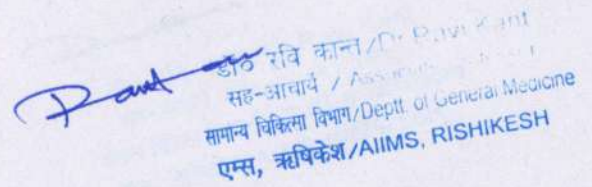 डॉ० रवि कान्त/Dr. Ravi Kant
सह-आचार्य /
सामान्य चिकित्सा विभाग/Deptt. of General Medicine
एम्स, ऋषिकेश/AIIMS, RISHIKESH